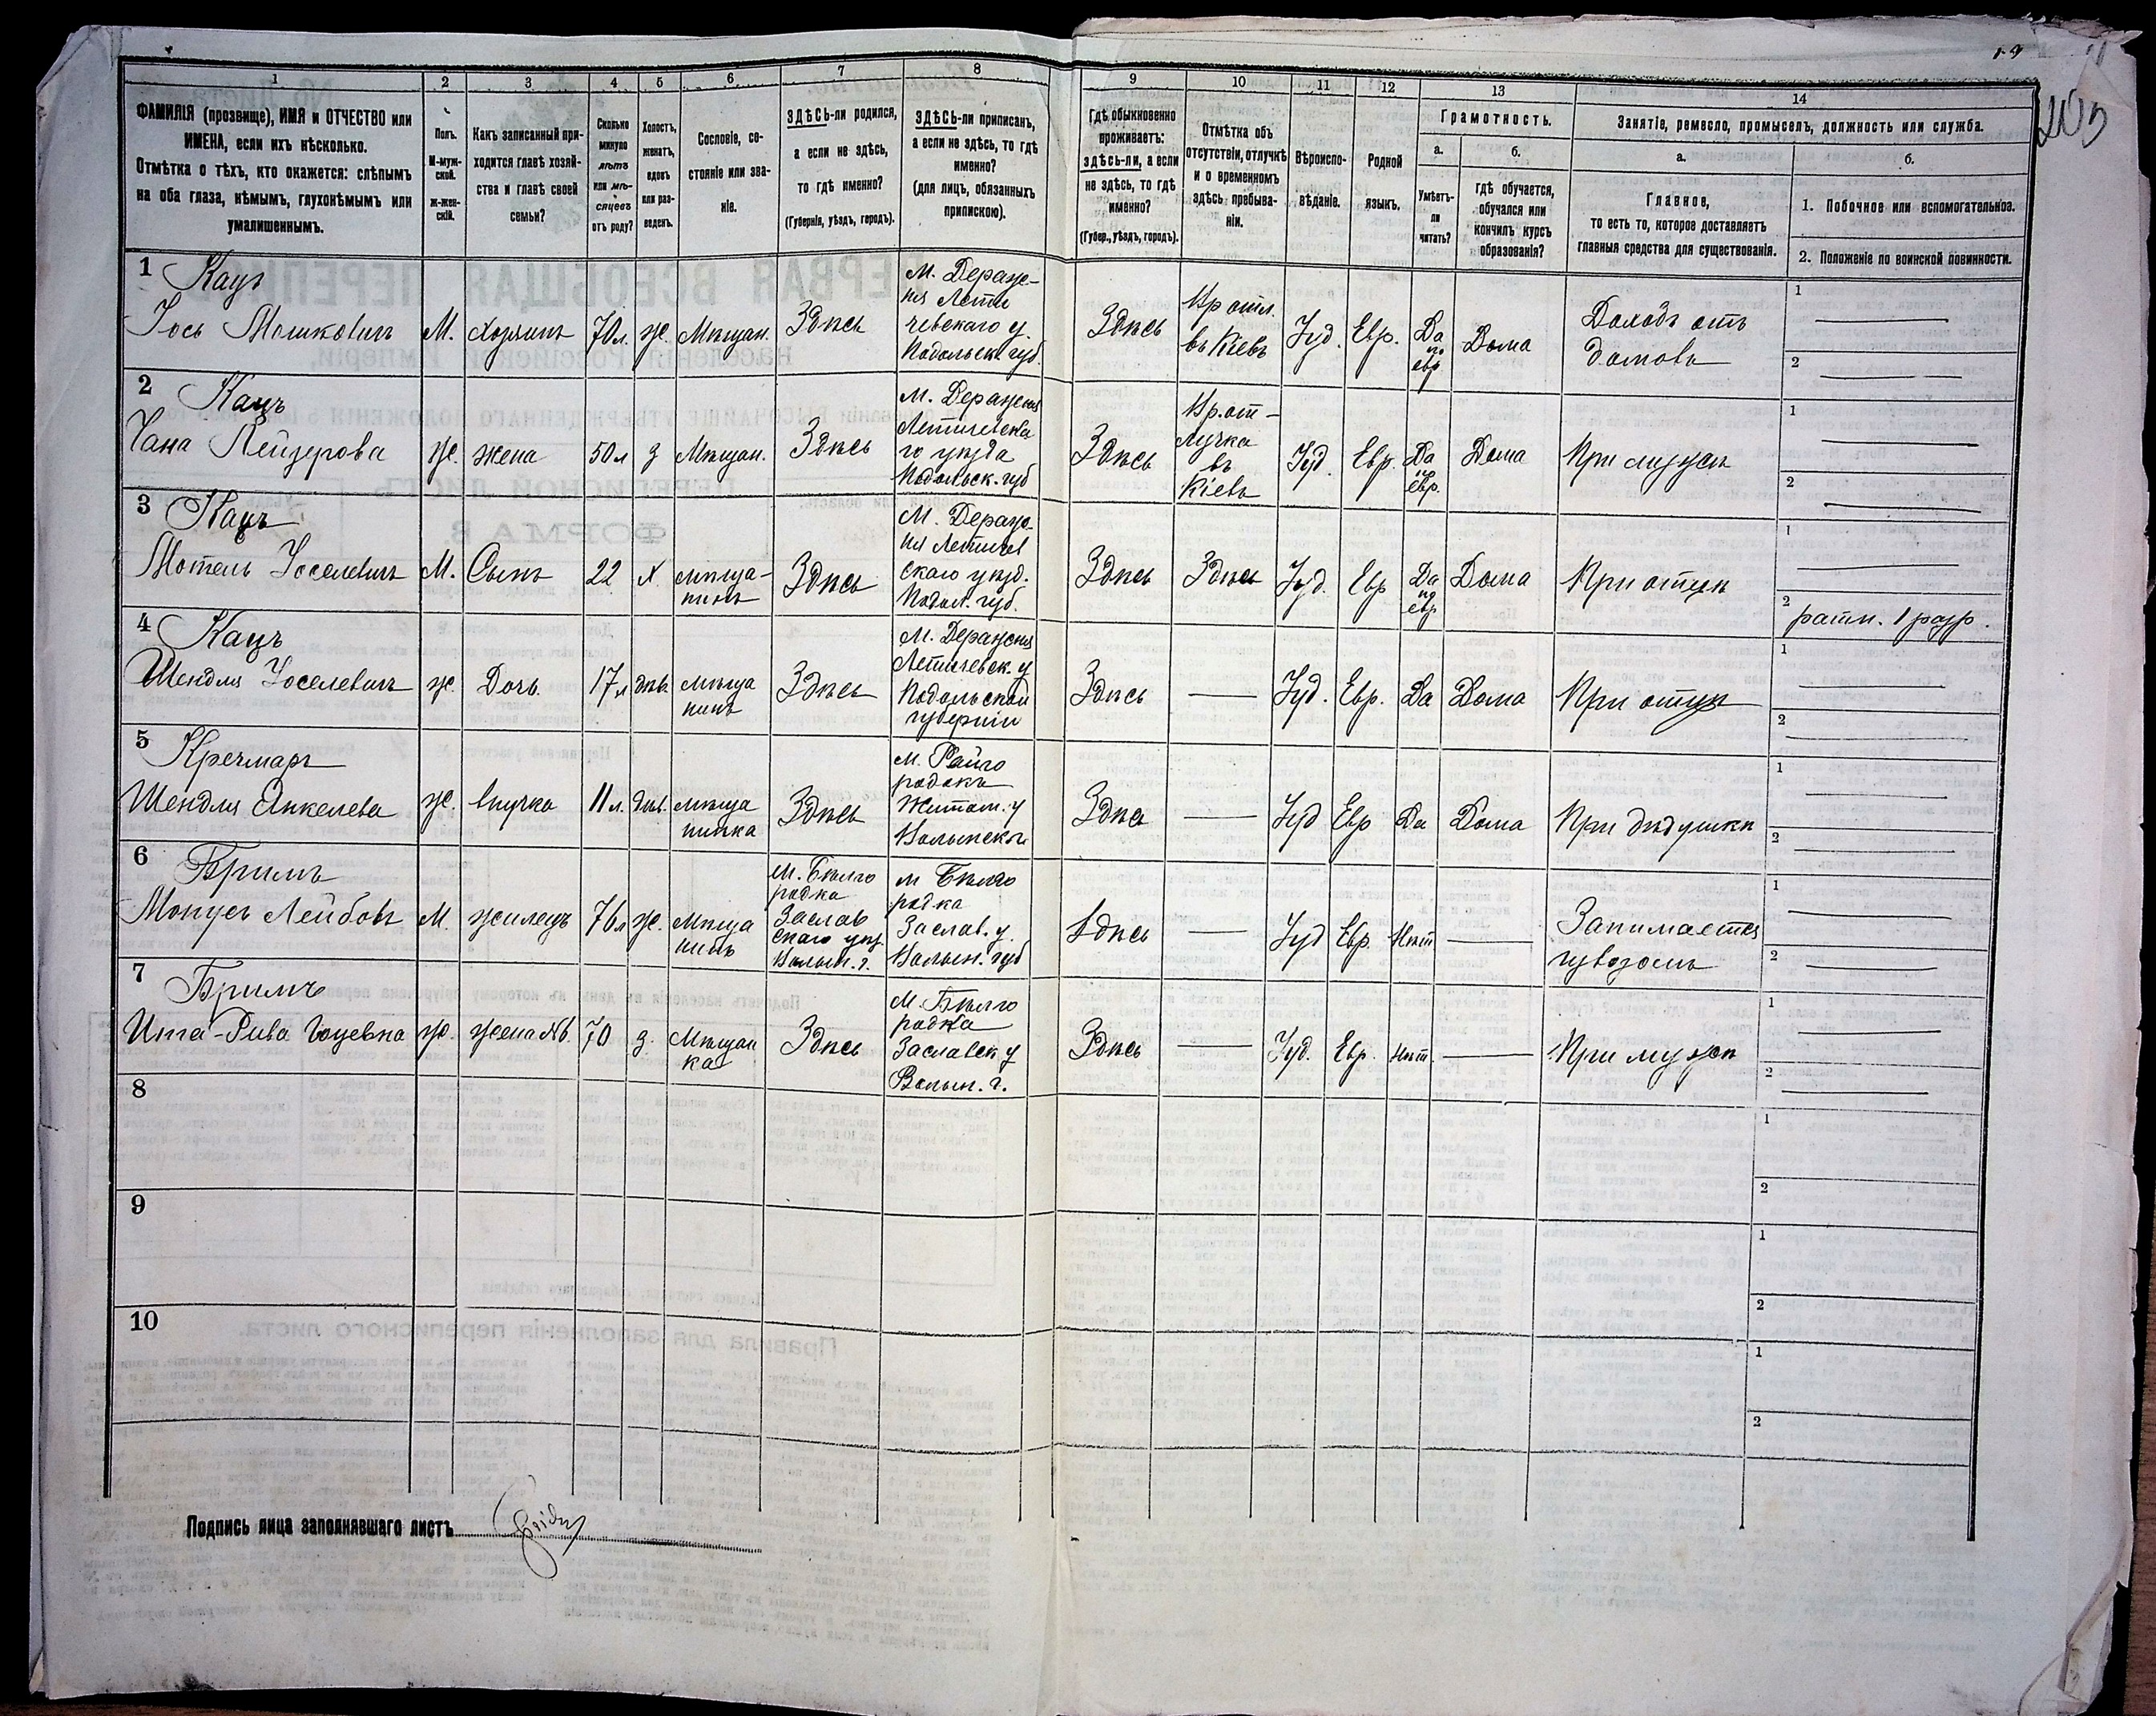 1 2 3 4 5 6 7 8 9 10 11 12 13 14
ФАМИЛІЯ (прозвище), ИМЯ и ОТЧЕСТВО или
ИМЕНА, если ихъ нѣсколько.
Отмѣтка о тѣхъ, кто окажется: слѣпымъ
на оба глаза, нѣмымъ, глухонѣмымъ или
умалишеннымъ.
Полъ.
М-муж-
ской.
Ж-жен-
скій.
Какъ записанный при-
ходится главѣ хозяй-
ства и главѣ своей
семьи?
Сколько
минуло
лѣтъ
или мѣ-
сяцевъ
отъ роду?
Холостъ,
женатъ,
вдовъ
или раз-
веденъ.
Сословіе, со-
стояніе или зва-
ніе.
ЗДѢСЬ-ли родился,
а если не здѣсь,
то гдѣ именно?
(Губернія, уѣздъ, городъ).
ЗДѢСЬ-ли приписанъ,
а если не здѣсь, то гдѣ
именно?
(для лицъ, обязанныхъ
припискою).
Гдѣ обыкновенно
проживаетъ:
здѣсь-ли, а если
не здѣсь, то гдѣ
именно?
(Губер., уѣздъ, городъ).
Отмѣтка объ
отсутствіи, отлучкѣ
и о временномъ
здѣсь пребыва-
ніи.
Вѣроиспо-
вѣданіе.
Родной
языкъ.
Грамотность.
а.
Умѣетъ-
ли
читать?
б.
гдѣ обучается,
обучался или
кончилъ курсъ
образованія?
Занятіе, ремесло, промыселъ, должность или служба.
а.
Главное,
то есть то, которое доставляетъ
главныя средства для существованія.
б.
1. Побочное или вспомогательное.
2. Положеніе по воинской повинности.
203
1 Кацъ
Іось Мошковичъ
М.
хозяинъ
70л.
ж.
Мѣщан.
Здѣсь
м. Деражн-
ня Лети
чевскаго у.
Подольск. губ.
Здѣсь
Вр отл.
въ Кіевъ
Іуд.
Евр.
Да
по
евр
Дома
Доходъ отъ
домовъ
1
2
2 Кацъ
Хана Лейзерова
ж.
жена
50л
з
Мѣщан.
Здѣсь
м. Деражня
Летичевска
го уѣзда
Подольск. губ
Здѣсь
Вр. от-
лучка
въ
Кіевъ
Іуд.
Евр.
Да
по
евр.
Дома
При мужѣ
1
2
3 Кацъ
Мотель Іоселевичъ
М.
Сынъ
22
х.
мѣща-
нинъ
Здѣсь
М. Дераж-
ня Летичев
скаго уѣзд.
Подол. губ.
Здѣсь
Здѣсь
Іуд.
Евр
Да
по
евр
Дома
При отцѣ
1
2
ратн. 1 разр.
4 Кацъ
Шендля Іоселевичъ
ж.
Дочь
17л
дѣв.
мѣща
нинъ
Здѣсь
м. Деражня
Летичевск. у
Подольской
губерніи
Здѣсь
Іуд.
Евр.
Да
Дома
При отцѣ
1
2
5 Кречмаръ
Шендля Янкелева
ж.
внучка
11л.
дѣв.
мѣща
нинка
Здѣсь
м. Райго
родокъ
Житом. у
Волынск. г
Здѣсь
Іуд
Евр
Да
Дома
При дѣдушкѣ
1
2
6 Бримъ
Монусъ Лейбовъ
М.
жилецъ
76л
ж.
Мѣща
нинъ
м. Бѣлго
родка
Заслав
скаго уѣз.
Волын. г.
м Бѣлго
родка
Заслав. у.
Волын. губ
Здѣсь
Іуд
Евр.
Нѣт
Занимается
1
2
7 Бримъ
Ита-Рива
ж.
жена №6.
70
з.
Мѣщан
ка
Здѣсь
м. Бѣлго
родка
Заславск у
Волын. г.
Здѣсь
Іуд.
Евр.
Нѣт.
При мужѣ
1
2
8
1
2
9
1
2
10
1
2
Подпись лица заполнявшаго листъ